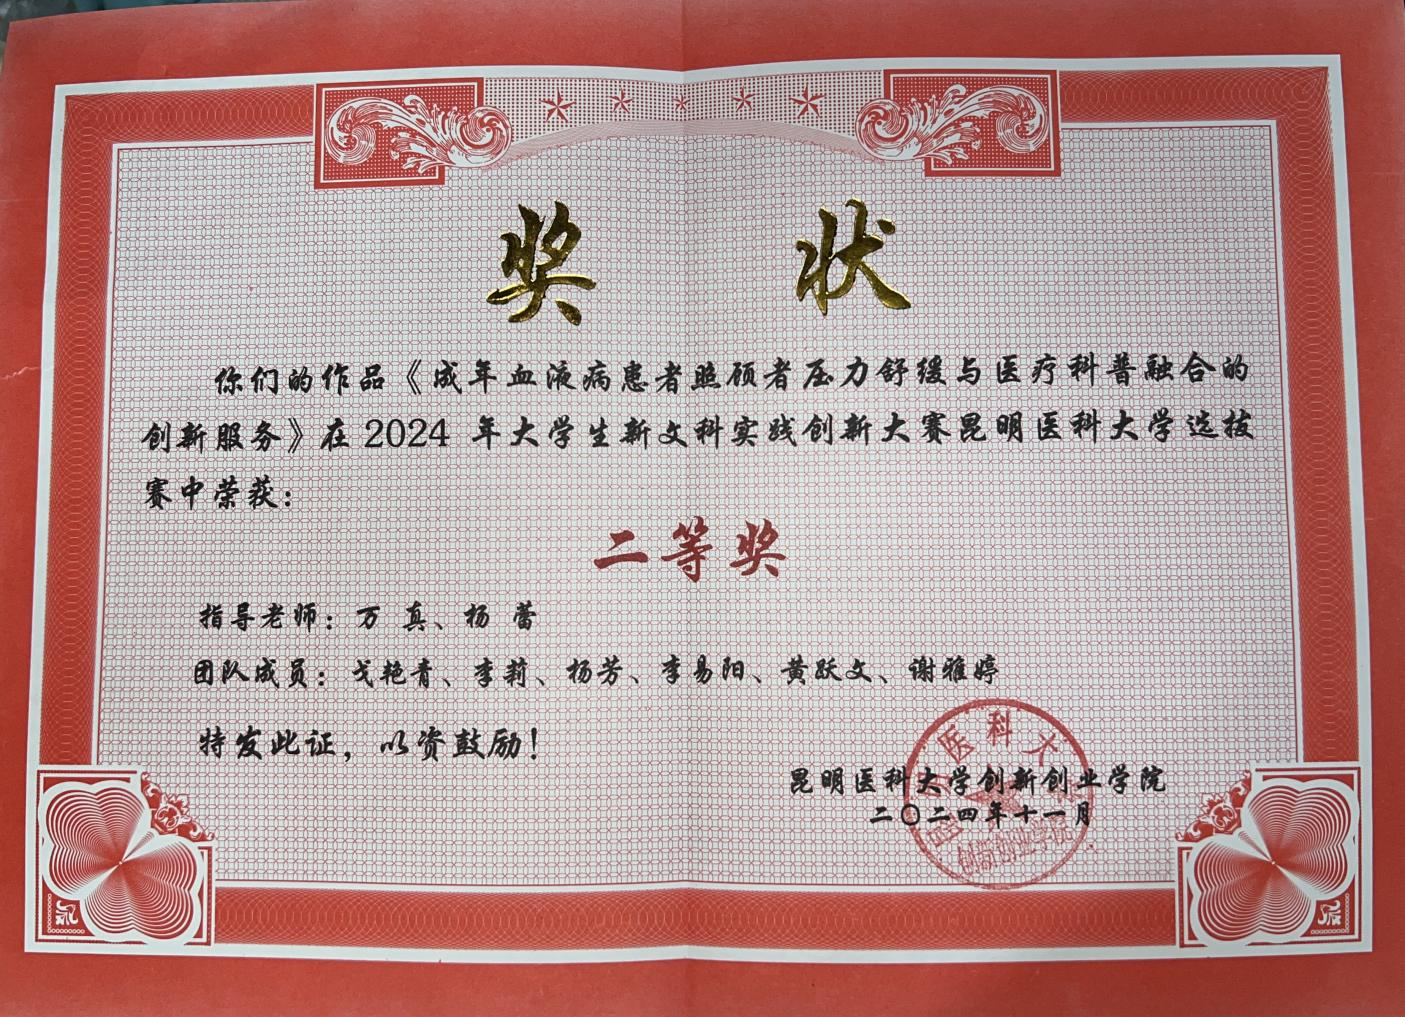 奖状
你们的作品《成年血液病患者照顾者压力舒缓与医疗科普融合的
创新服务》在2024 年大学生新文科实践创新大赛昆明医科大学选拔
赛中荣获：
二等奖
指导老师：万 真、杨 蕾
团队成员：戈艳青、李莉、杨芳、李易阳、黄跃文、谢雅婷
特发此证，以资鼓励！
昆明医科大学创新创业学院
二〇二四年十一月
昆明医科大学
创新创业学院